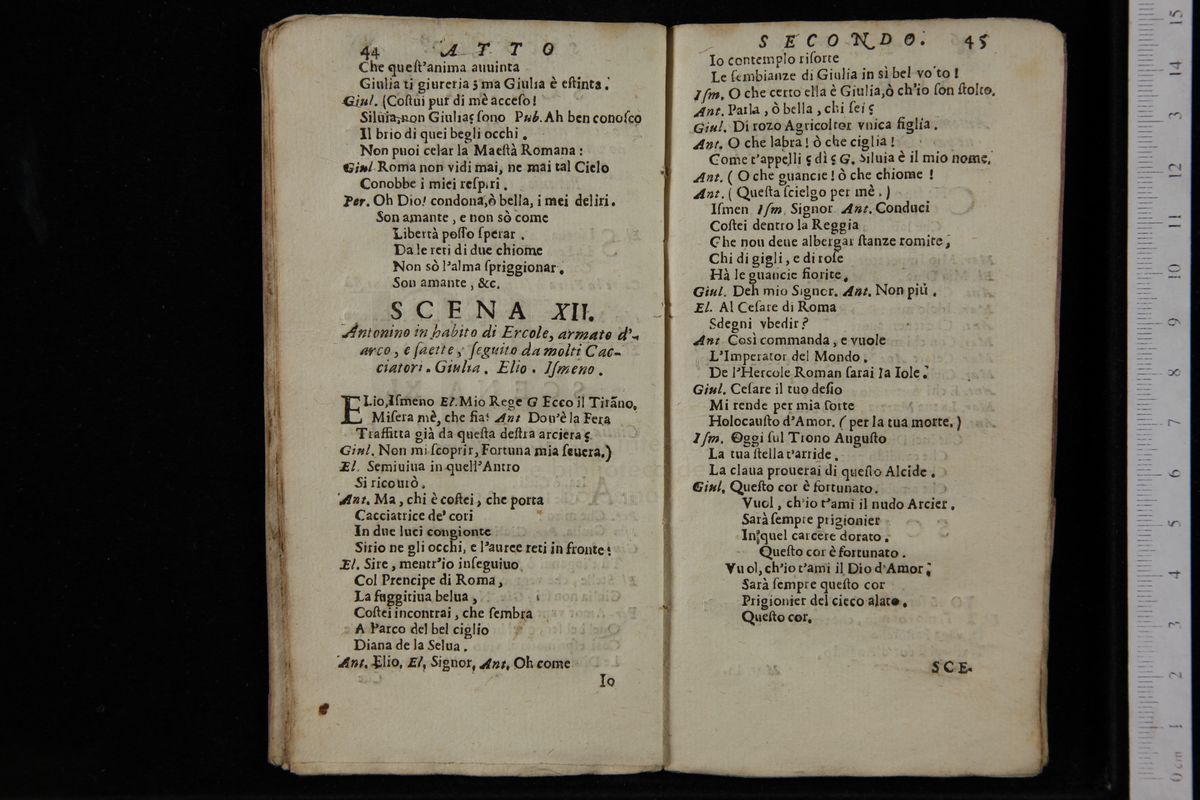 44 A T T O
Che queſt'anima auuinta
Giulia ti giureria; ma Giulia è eſtinta.
Giul. (Coſtui pur di mè acceſo!
Siluia, non Giulia ſono Pub. Ah ben conoſco
Il brio di quei begli occhi.
Non puoi celar la Maeſtà Romana:
Giul Roma non vidi mai, ne mai tal Cielo
Conobbe i miei reſpiri.
Per. Oh Dio! condona, ò bella, i mei deliri.
Son amante, e non sò come
Libertà poſſo ſperar.
Da le reti di due chiome
Non sò l'alma ſpriggionar.
Son amante, &c.
SCENA XII.
Antonino in habito di Ercole, armato d'-
arco, e ſaette, ſeguito da molti Cac-
ciatori. Giulia. Elio. Iſmeno.
ELio, Iſmeno El. Mio Rege G Ecco il Tirãno,
Miſera mè, che fia? Ant Dou'è la Fera
Traffitta già da queſta deſtra arciera?
Giul. Non mi ſcoprir, Fortuna mia ſeuera.)
El. Semiuiua in quell'Antro
Si ricourò.
Ant. Ma, chi è coſtei, che porta
Cacciatrice de' cori
In due luci congionte
Sirio ne gli occhi, e l'auree reti in fronte?
El. Sire, mentr'io inſeguiuo
Col Prencipe di Roma,
La fuggitiua belua,
Coſtei incontrai, che ſembra
A l'arco del bel ciglio
Diana de la Selua.
Ant. Elio, El, Signor, Ant, Oh come
Io
SECONDO. 45
Io contemplo riſorte
Le ſembianze di Giulia in sì bel vo'to!
Iſm. O che certo ella è Giulia, ò ch'io ſon ſtolto.
Ant. Parla, ò bella, chi ſei?
Giul. Di rozo Agricoltor vnica figlia.
Ant. O che labra! ò che ciglia!
Come t'appelli? dì? G. Siluia è il mio nome.
Ant. (O che guancie! ò che chiome!
Ant. (Queſta ſcielgo per mè.)
Iſmen Iſm. Signor Ant. Conduci
Coſtei dentro la Reggia
Che non deue albergar ſtanze romite,
Chi di gigli, e di roſe
Hà le guancie fiorite.
Giul. Deh mio Signor. Ant. Non più.
El. Al Ceſare di Roma
Sdegni vbedir?
Ant Così commanda, e vuole
L'Imperator del Mondo.
De l'Hercole Roman ſarai la Iole.
Giul. Ceſare il tuo deſio
Mi rende per mia ſorte
Holocauſto d'Amor. (per la tua morte.)
Iſm. Oggi ſul Trono Auguſto
La tua ſtella t'arride.
La claua prouerai di queſto Alcide.
Giul. Queſto cor è fortunato.
Vuol, ch'io t'ami il nudo Arcier.
Sarà ſempre prigionier
In quel carcere dorato.
Queſto cor è fortunato.
Vuol, ch'io t'ami il Dio d'Amor;
Sarà ſempre queſto cor
Prigionier del cieco alato.
Queſto cor.
SCE-
15
14
13
12
11
10
9
8
7
6
5
4
3
2
1
0 cm